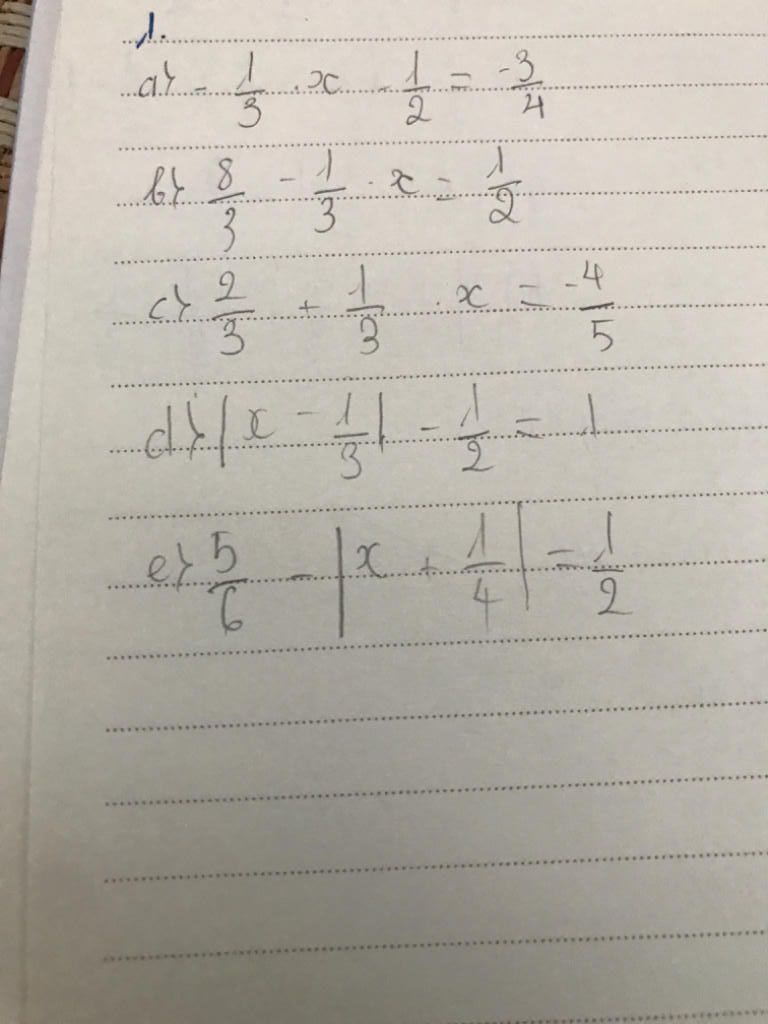 1.
a) - 1/3 . x - 1/2 = -3/4
b) 8/3 - 1/3 . x = 1/2
c) 2/3 + 1/3 . x = -4/5
d) |x - 1/3| - 1/2 = 1
e) 5/6 - |x + 1/4| = 1/2